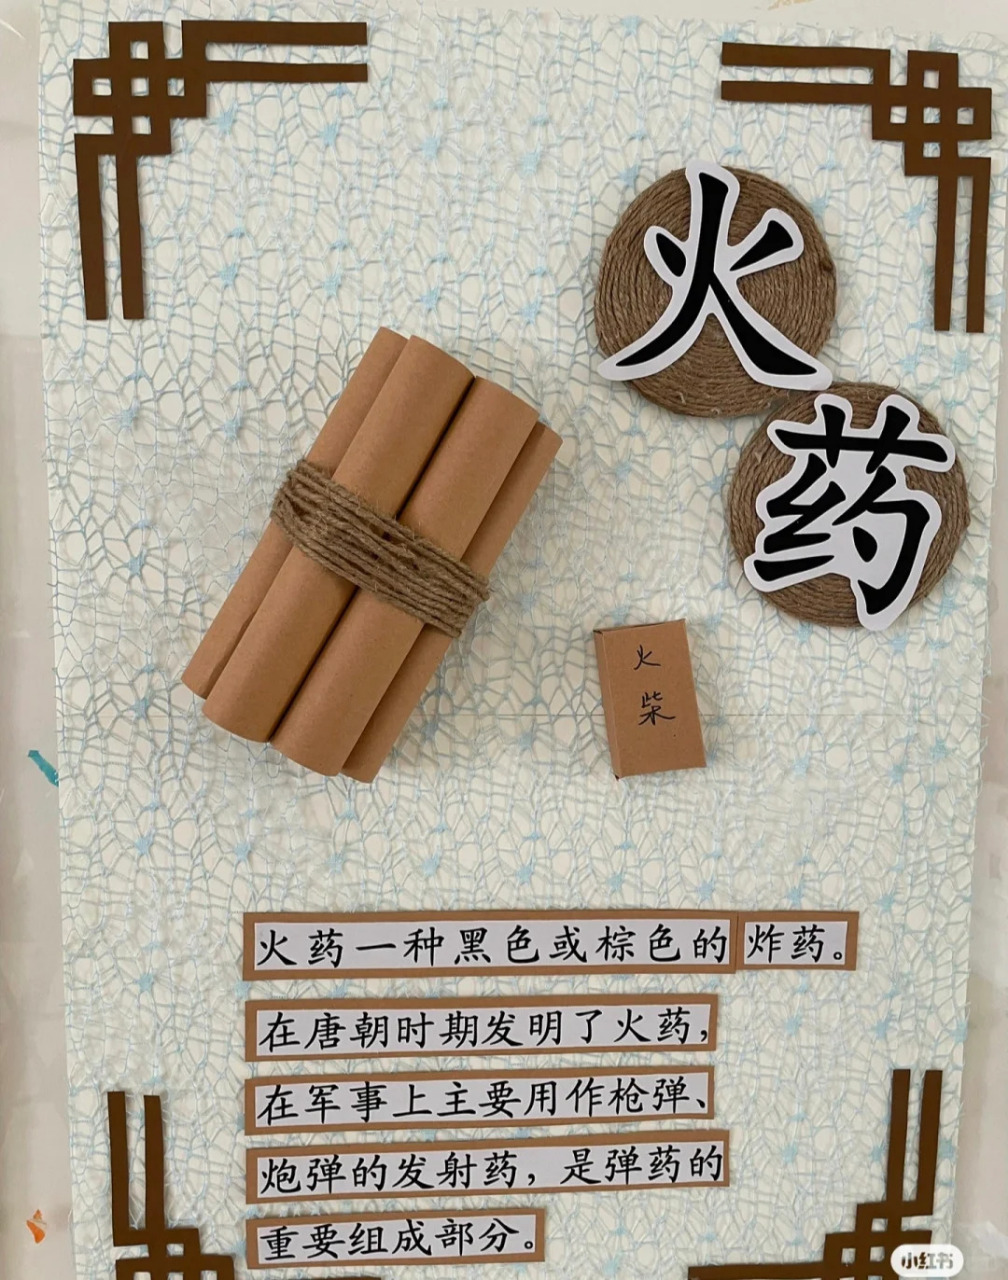 火药
火柴
火药一种黑色或棕色的炸药。
在唐朝时期发明了火药，
在军事上主要用作枪弹、
炮弹的发射药，是弹药的
重要组成部分。
小红书